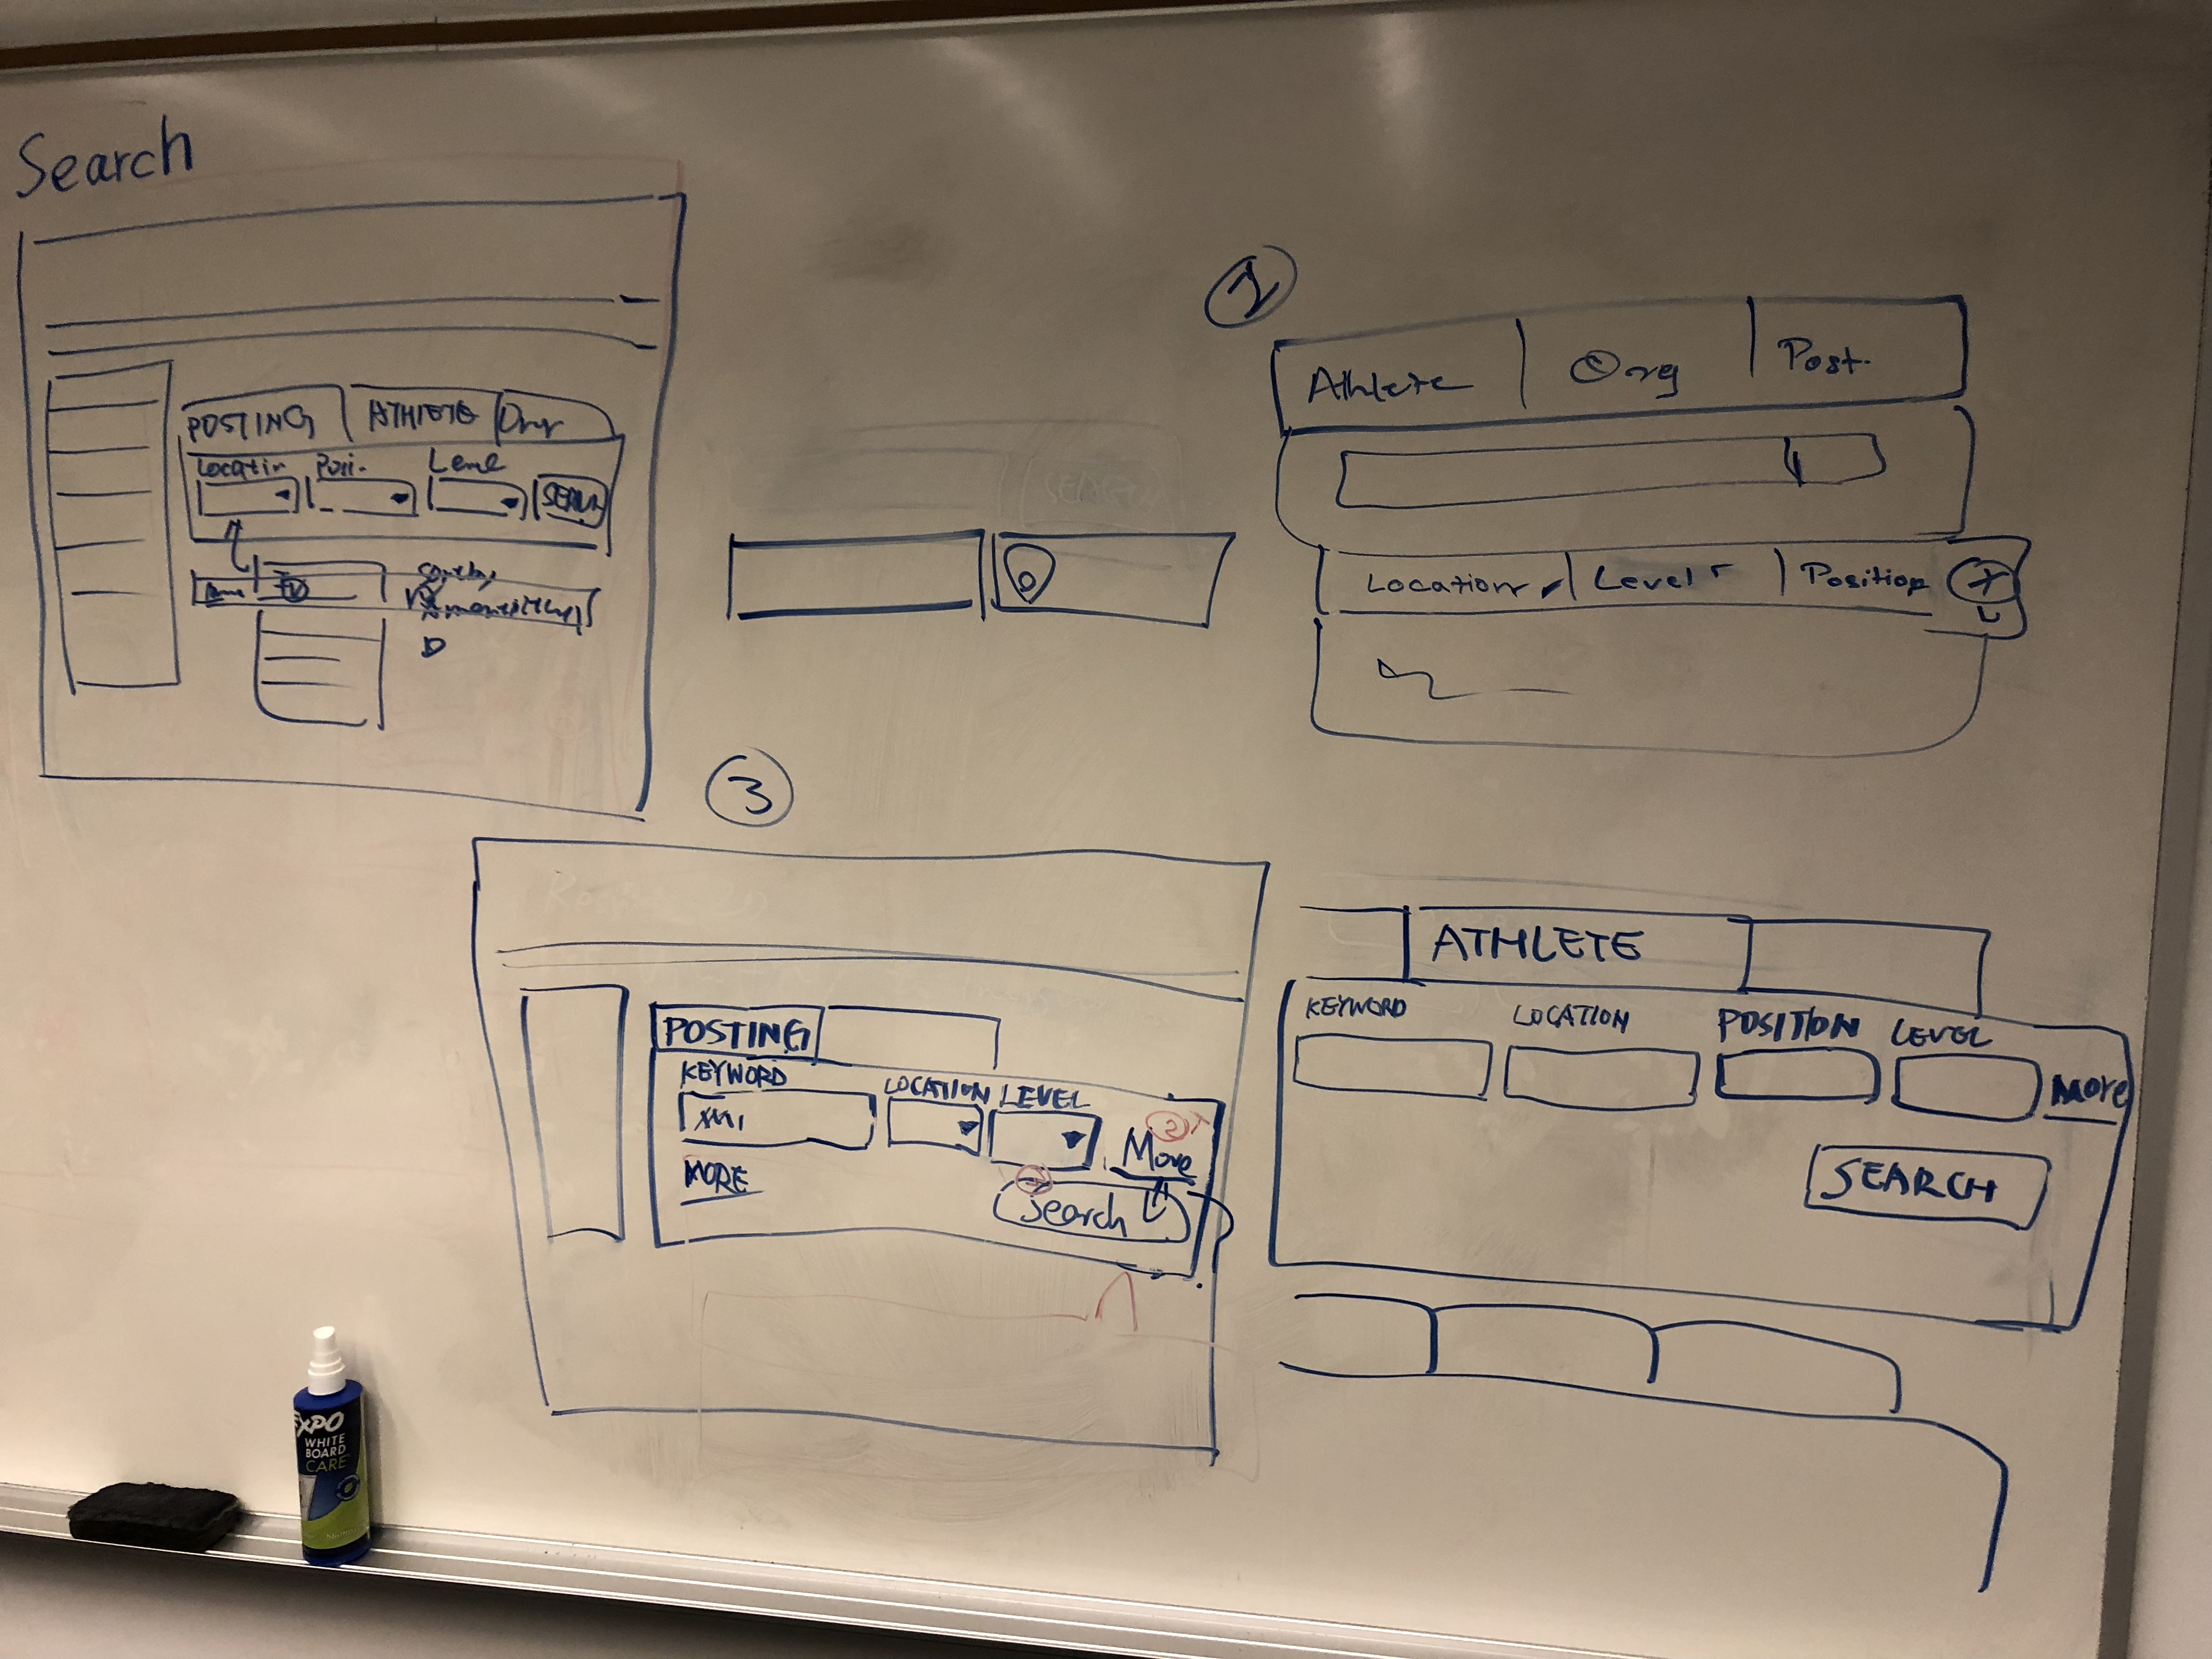 Search
POSTING ATHLETE
Locatin Posi. Level
2
Athlete Org Post.
Location Level Position +
3
POSTING
KEYWORD LOCATION LEVEL
More
MORE
Search
ATHLETE
KEYWORD LOCATION POSITION LEVEL
MORE
SEARCH
EXPO
WHITE
BOARD
CARE